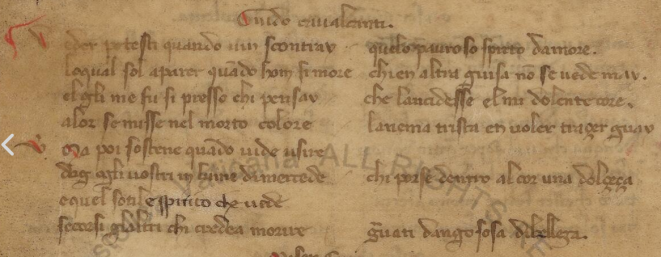 Guido cavalcanti.
Veder potesti quando uin scontray quelo pauroso spirito damore.
loqual sol aparer quãdo hom si more chi en altra guisa nõ se uede may.
el gli me fu si presso chi pensay che lancidesse el mi dolente core.
alor se misse nel morto colore lanema trista en uoler trager guay
Ma poi sostene quãdo uide usire
ogli uostri un lume damercede chi porse dentro al cor una dolceça
e quel sotil e spirito che uede
secorsi glaltri chi credea morire g̃uati dango sosa debelleça.